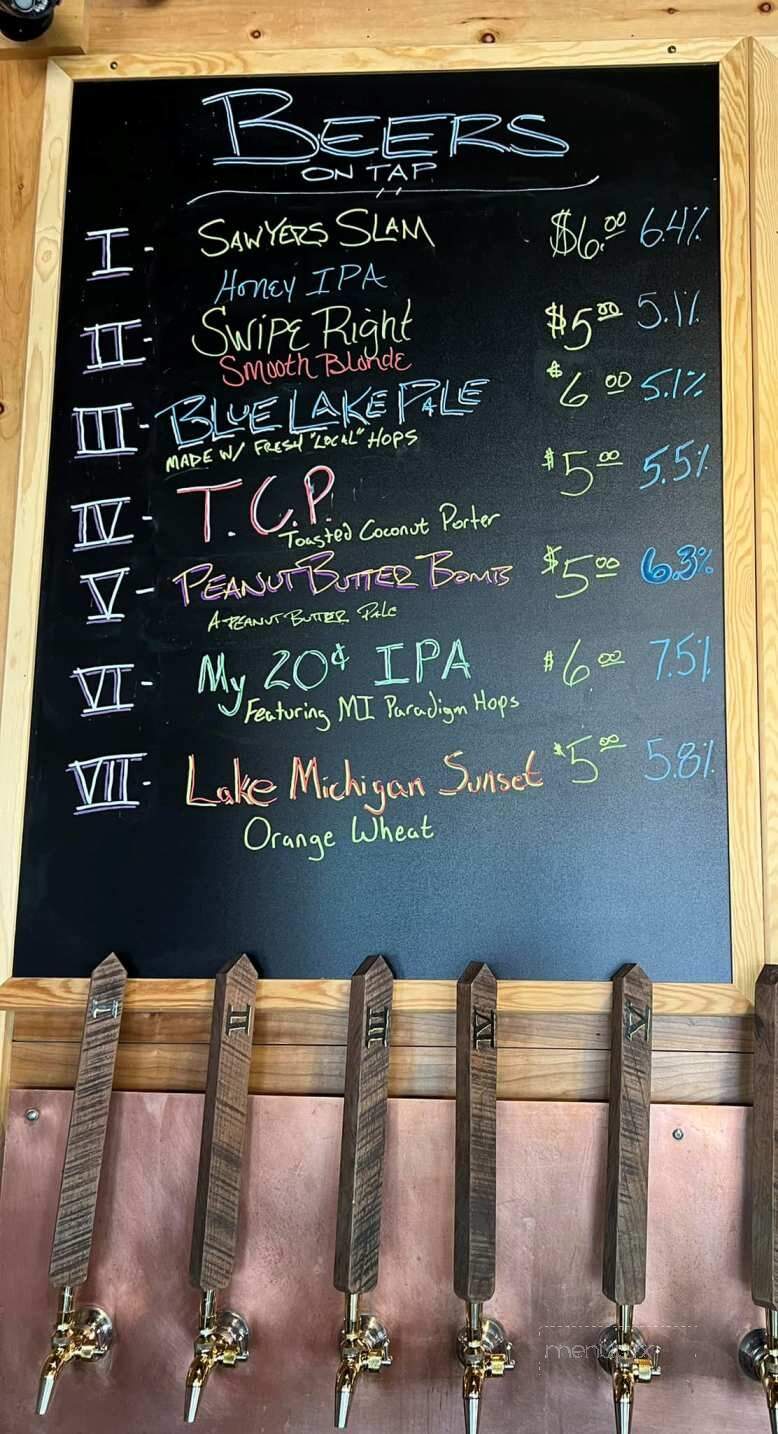 BEERS
ON TAP
I- SAWYERS SLAM $6.00 6.4%
HONEY IPA
II- SWIPE Right $5.00 5.1%
Smooth Blonde
III- BLUE LAKE PALE $6 00 5.1%
MADE W/ FRESH "LOCAL" HOPS
IV- T.C.P. $5 00 5.5%
Toasted Coconut Porter
V- PEANUT BUTTER BOMB $5 00 6.3%
A PEANUT BUTTER PALE
VI- My 20¢ IPA $6 00 7.5%
Featuring MI Paradigm Hops
VII- Lake Michigan Sunset $5 00 5.8%
Orange Wheat
I II III IV V